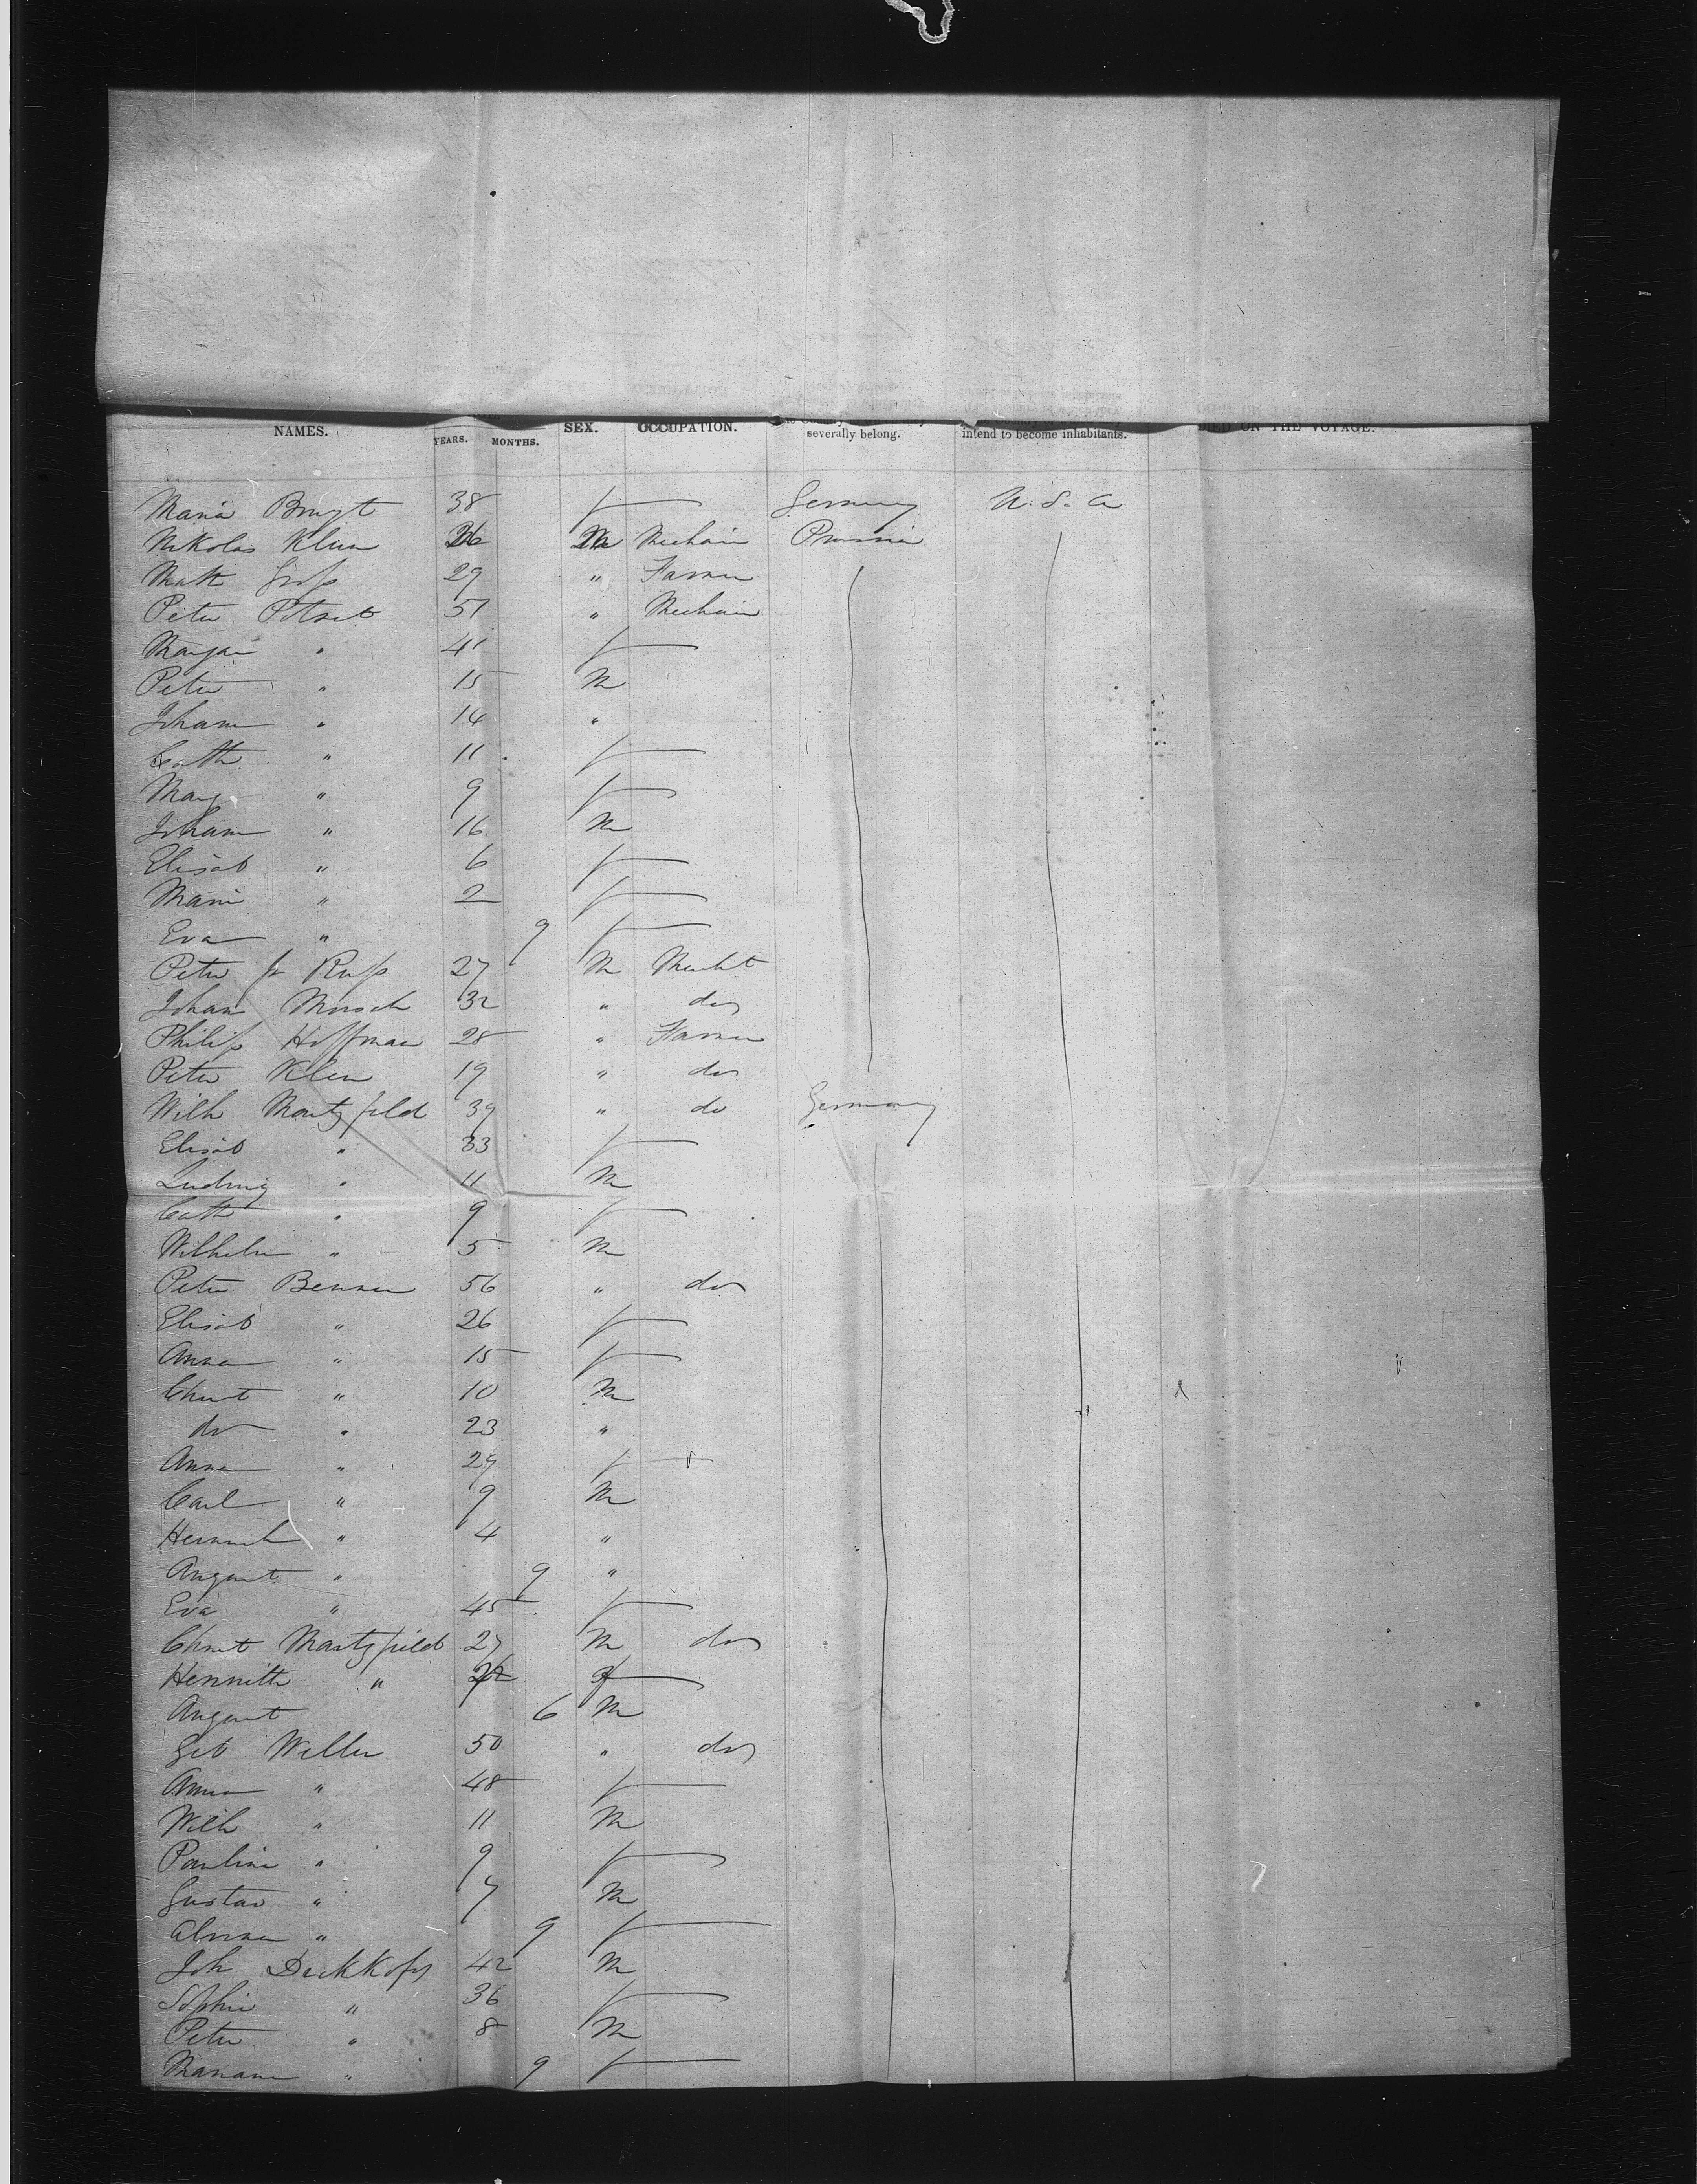 NAMES. YEARS. MONTHS. SEX. OCCUPATION. severally belong. intend to become inhabitants. DIED ON THE VOYAGE.
Maria 38 f Germany U.S.A
Nikolas Klein 26 M Mechain Prussia
Math Groß 29 " Farmer
Peter 51 " Mechain
" 41 f
Peter " 15 M
Johann " 14 "
Cath " 11 f
Marg " 9 f
Johann " 16 M
Elisab " 6 f
Marie " 2 f
Eva " 9 f
Peter Jr Ruß 27 M Mercht
Johan 32 " do
Philip Hoffman 28 " Farmer
Peter Klein 19 " do
Wilh Martzfeld 39 " do Germany
Elisab " 33 f
Ludwig " 11 M
Cath " 9 f
Wilhelm " 5 M
Peter Benner 56 " do
Elisab " 26 f
Anna " 15 f
Christ " 10 M
do " 23 "
Anna " 29 f
Carl " 9 M
Heinrich " 4 "
August " 9 "
Eva " 45 f
Christ Martzfield 27 M do
" f
August 6 M
Weller 50 " do
Anna " 48 f
Wilh " 11 M
Pauline " 9 f
Gustav " 7 M
" 9 f
Joh 42 M
Sophie " 36 f
Peter " 8 M
" 9 f